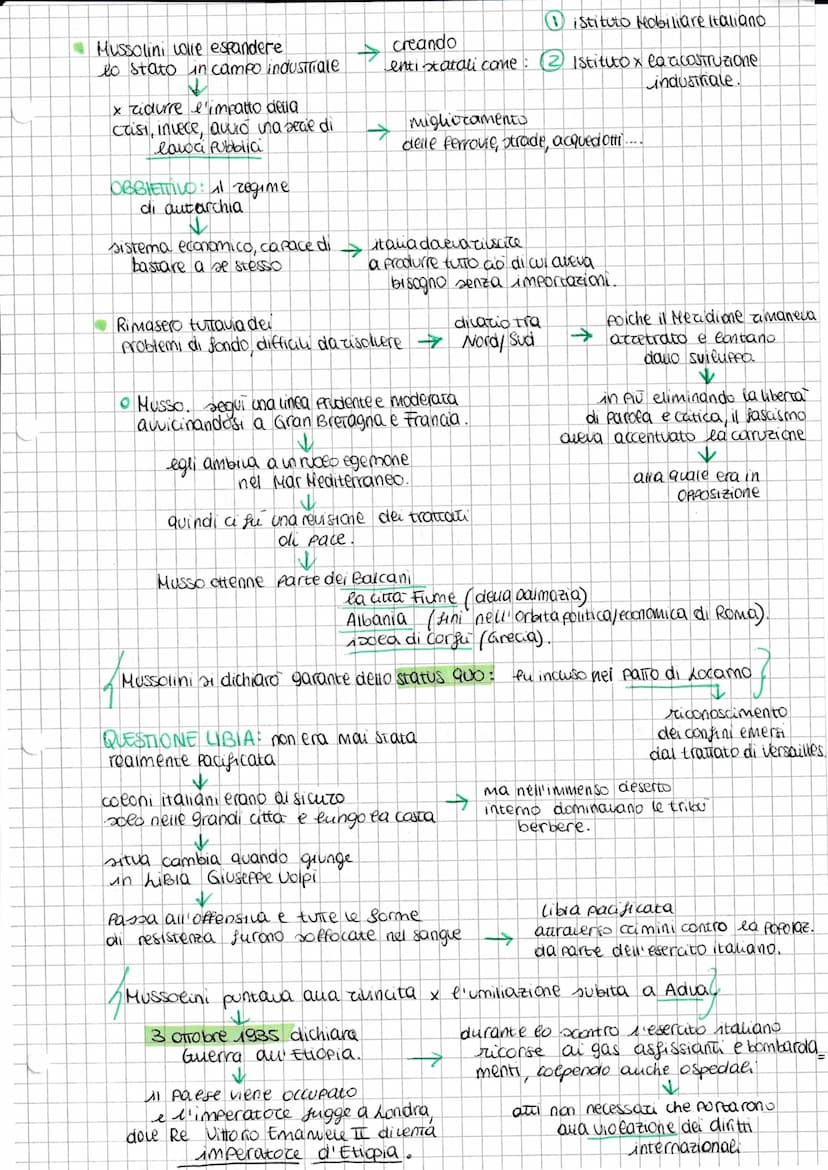 Mussolini volle espandere
lo stato in campo industriale
→ creando
enti statali come:
① istituto Mobiliare Italiano
② Istituto x la ricostruzione
industriale.
x ridurre l'impatto della
crisi, invece, avviò una serie di
lavori pubblici
→ miglioramento
delle ferrovie, strade, acquedotti....
OBBIETTIVO: il regime
di autarchia
sistema economico, capace di
bastare a se stesso
→ italia doveva riuscire
a produrre tutto ciò di cui aveva
bisogno senza importazioni.
Rimasero tuttavia dei
problemi di fondo, difficili da risolvere
→ divario tra
Nord/Sud
→ poiche il Meridione rimaneva
arretrato e lontano
dallo sviluppo.
in più eliminando la libertà
di parola e critica, il fascismo
aveva accentuato la coruzione
alla quale era in
OPPOSIZIONE
Musso. seguì una linea prudente e moderata
avvicinandosi a Gran Bretagna e Francia.
egli ambiva a un ruolo egemone
nel Mar Mediterraneo.
quindi ci fù una revisione dei trattati
di pace.
Musso ottenne parte dei Balcani
la città Fiume (della Dalmazia)
Albania (finì nell'orbita politica/economica di Roma).
isola di Corfù (Grecia).
Mussolini si dichiarò garante dello status quo: fu incluso nel patto di Locarno
riconoscimento
dei confini emersi
dal trattato di Versailles
QUESTIONE LIBIA: non era mai stata
realmente pacificata
coloni italiani erano al sicuro
solo nelle grandi città e lungo la costa
→ ma nell'immenso deserto
interno dominavano le tribù
berbere.
situa cambia quando giunge
in Libia Giuseppe Volpi
Passa all'offensiva e tutte le forme
di resistenza furono soffocate nel sangue
→ Libia pacificata
attraverso crimini contro la popolaz.
da parte dell'esercito italiano.
Mussolini puntava alla rivincita x l'umiliazione subita a Adua
3 ottobre 1935 dichiara
Guerra all'Etiopia.
→ durante lo scontro l'esercito italiano
ricorse ai gas asfissianti e bombarda=
menti, colpendo anche ospedali
atti non necessari che portarono
alla violazione dei diritti
internazionali
il paese viene occupato
e l'imperatore fugge a Londra,
dove Re Vittorio Emanuele II diventa
imperatore d'Etiopia.